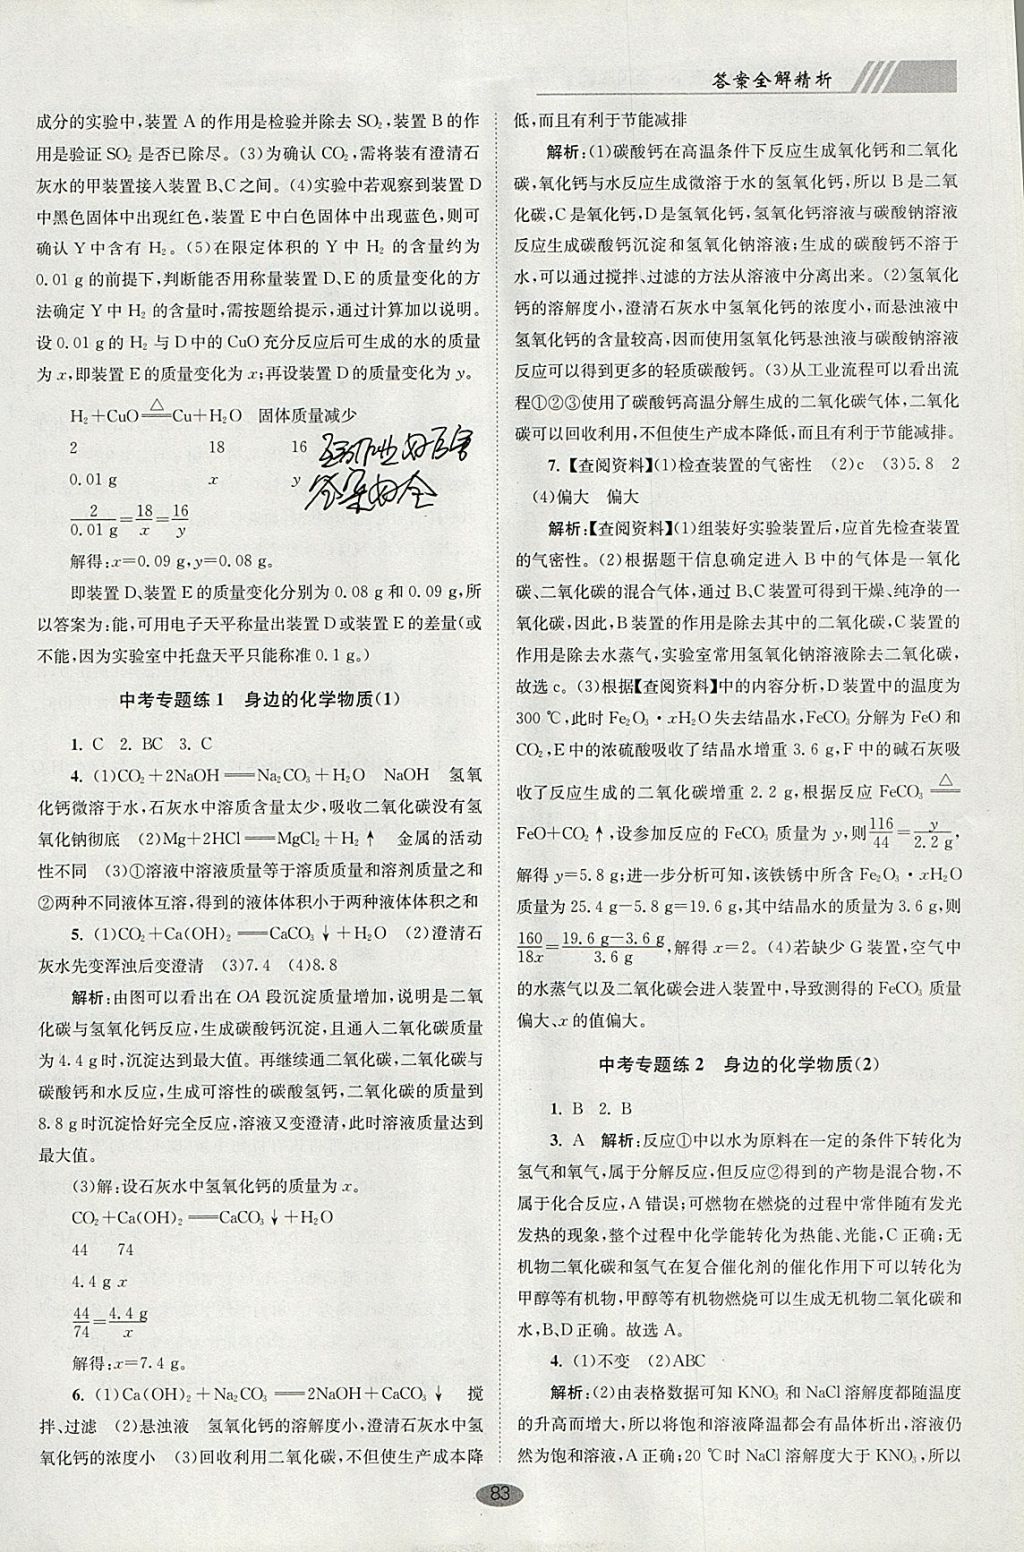 答案全解精析
成分的实验中,装置 A 的作用是检验并除去 SO₂,装置 B 的作
用是验证 SO₂ 是否已除尽。(3)为确认 CO₂,需将装有澄清石
灰水的甲装置接入装置 B、C 之间。(4)实验中若观察到装置 D
中黑色固体中出现红色,装置 E 中白色固体中出现蓝色,则可
确认 Y 中含有 H₂。(5)在限定体积的 Y 中 H₂ 的含量约为
0.01 g 的前提下,判断能否用称量装置 D、E 的质量变化的方
法确定 Y 中 H₂ 的含量时,需按题给提示,通过计算加以说明。
设 0.01 g 的 H₂ 与 D 中的 CuO 充分反应后可生成的水的质量
为 x,即装置 E 的质量变化为 x;再设装置 D 的质量变化为 y。
H₂+CuO══△══Cu+H₂O 固体质量减少
2 18 16
0.01 g x y
2/0.01 g=18/x=16/y
解得:x=0.09 g,y=0.08 g。
即装置 D、装置 E 的质量变化分别为 0.08 g 和 0.09 g,所
以答案为:能,可用电子天平称量出装置 D 或装置 E 的差量(或
不能,因为实验室中托盘天平只能称准 0.1 g。)
中考专题练 1 身边的化学物质(1)
1. C 2. BC 3. C
4. (1)CO₂+2NaOH══Na₂CO₃+H₂O NaOH 氢氧
化钙微溶于水,石灰水中溶质含量太少,吸收二氧化碳没有氢
氧化钠彻底 (2)Mg+2HCl══MgCl₂+H₂↑ 金属的活动
性不同 (3)①溶液中溶液质量等于溶质质量和溶剂质量之和
②两种不同液体互溶,得到的液体体积小于两种液体体积之和
5. (1)CO₂+Ca(OH)₂══CaCO₃↓+H₂O (2)澄清石
灰水先变浑浊后变澄清 (3)7.4 (4)8.8
解析:由图可以看出在 OA 段沉淀质量增加,说明是二氧
化碳与氢氧化钙反应,生成碳酸钙沉淀,且通入二氧化碳质量
为 4.4 g 时,沉淀达到最大值。再继续通二氧化碳,二氧化碳与
碳酸钙和水反应,生成可溶性的碳酸氢钙,二氧化碳的质量到
8.8 g 时沉淀恰好完全反应,溶液又变澄清,此时溶液质量达到
最大值。
(3)解:设石灰水中氢氧化钙的质量为 x。
CO₂+Ca(OH)₂══CaCO₃↓+H₂O
44 74
4.4 g x
44/74=4.4 g/x
解得:x=7.4 g。
6. (1)Ca(OH)₂+Na₂CO₃══2NaOH+CaCO₃↓ 搅
拌、过滤 (2)悬浊液 氢氧化钙的溶解度小,澄清石灰水中氢
氧化钙的浓度小 (3)回收利用二氧化碳,不但使生产成本降
低,而且有利于节能减排
解析:(1)碳酸钙在高温条件下反应生成氧化钙和二氧化
碳,氧化钙与水反应生成微溶于水的氢氧化钙,所以 B 是二氧
化碳,C 是氧化钙,D 是氢氧化钙,氢氧化钙溶液与碳酸钠溶液
反应生成碳酸钙沉淀和氢氧化钠溶液;生成的碳酸钙不溶于
水,可以通过搅拌、过滤的方法从溶液中分离出来。(2)氢氧化
钙的溶解度小,澄清石灰水中氢氧化钙的浓度小,而悬浊液中
氢氧化钙的含量较高,因而使用氢氧化钙悬浊液与碳酸钠溶液
反应可以得到更多的轻质碳酸钙。(3)从工业流程可以看出流
程①②③使用了碳酸钙高温分解生成的二氧化碳气体,二氧化
碳可以回收利用,不但使生产成本降低,而且有利于节能减排。
7.【查阅资料】(1)检查装置的气密性 (2)c (3)5.8 2
(4)偏大 偏大
解析:【查阅资料】(1)组装好实验装置后,应首先检查装置
的气密性。(2)根据题干信息确定进入 B 中的气体是一氧化
碳、二氧化碳的混合气体,通过 B、C 装置可得到干燥、纯净的一
氧化碳,因此,B 装置的作用是除去其中的二氧化碳,C 装置的
作用是除去水蒸气,实验室常用氢氧化钠溶液除去二氧化碳,
故选 c。(3)根据【查阅资料】中的内容分析,D 装置中的温度为
300 ℃,此时 Fe₂O₃·xH₂O 失去结晶水,FeCO₃ 分解为 FeO 和
CO₂,E 中的浓硫酸吸收了结晶水增重 3.6 g,F 中的碱石灰吸
收了反应生成的二氧化碳增重 2.2 g,根据反应 FeCO₃══△══
FeO+CO₂↑,设参加反应的 FeCO₃ 质量为 y,则116/44=y/2.2 g,
解得 y=5.8 g;进一步分析可知,该铁锈中所含 Fe₂O₃·xH₂O
质量为 25.4 g−5.8 g=19.6 g,其中结晶水的质量为 3.6 g,则
160/18x=19.6 g−3.6 g/3.6 g,解得 x=2。(4)若缺少 G 装置,空气中
的水蒸气以及二氧化碳会进入装置中,导致测得的 FeCO₃ 质量
偏大、x 的值偏大。
中考专题练 2 身边的化学物质(2)
1. B 2. B
3. A 解析:反应①中以水为原料在一定的条件下转化为
氢气和氧气,属于分解反应,但反应②得到的产物是混合物,不
属于化合反应,A 错误;可燃物在燃烧的过程中常伴随有发光
发热的现象,整个过程中化学能转化为热能、光能,C 正确;无
机物二氧化碳和氢气在复合催化剂的催化作用下可以转化为
甲醇等有机物,甲醇等有机物燃烧可以生成无机物二氧化碳和
水,B、D 正确。故选 A。
4. (1)不变 (2)ABC
解析:(2)由表格数据可知 KNO₃ 和 NaCl 溶解度都随温度
的升高而增大,所以将饱和溶液降温都会有晶体析出,溶液仍
然为饱和溶液,A 正确;20 ℃时 NaCl 溶解度大于 KNO₃,所以
83